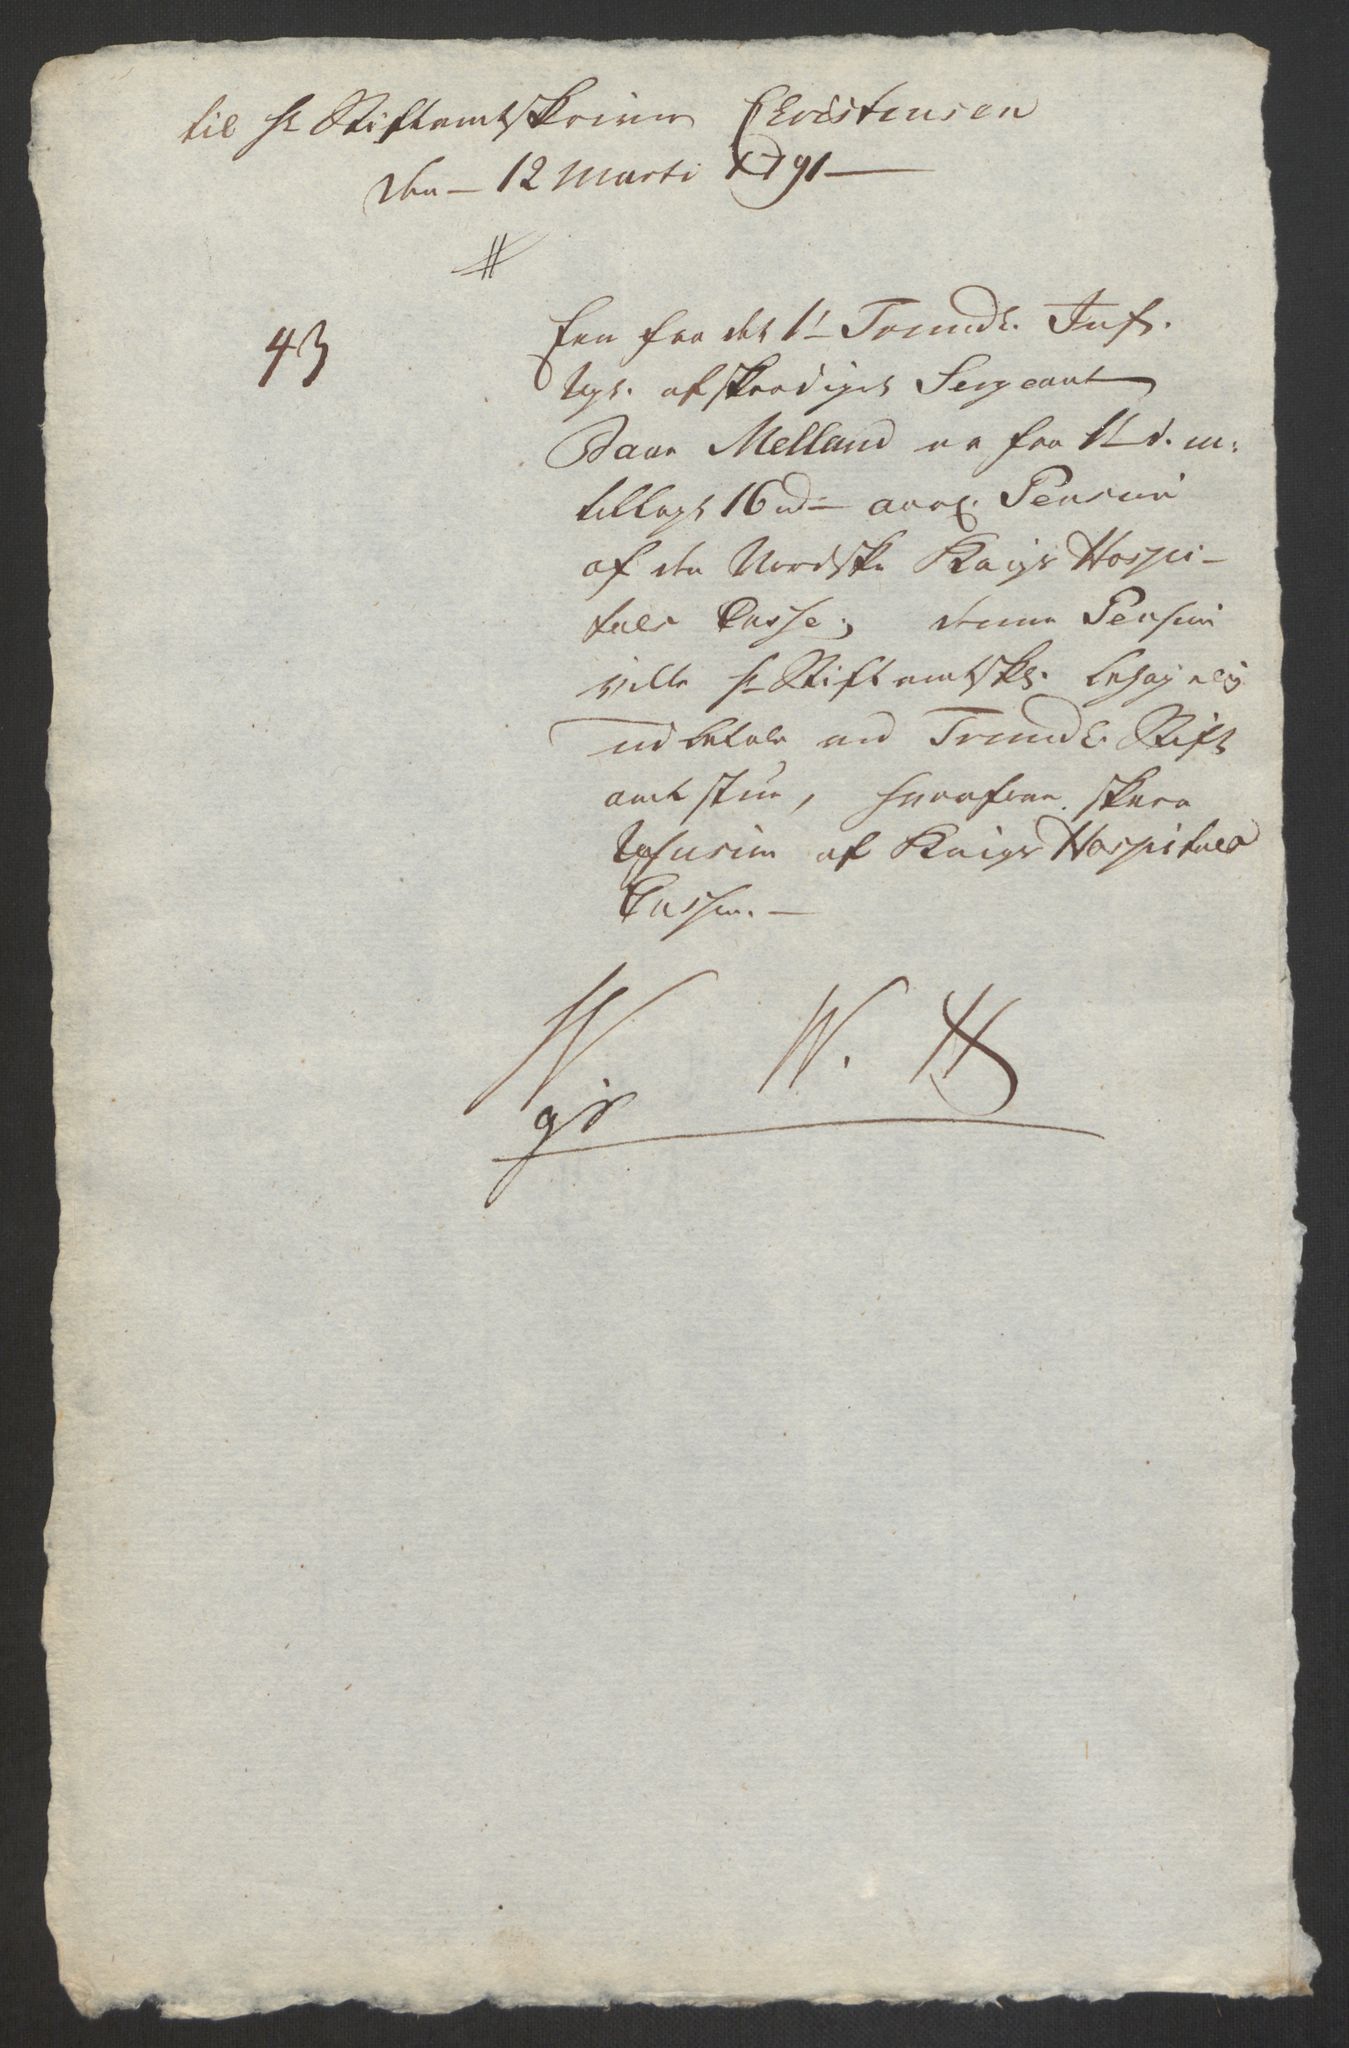 til Hr Stiftamtskriver Christensen
den – 12 Marti 1791 –
43
Een fra det 1te Trondh. Inf.
Rgt. afskediget Sergeant
Melland er fra 1te d. m:
tillagt 16 rd – aarl. Pension
af den Nordske Krigs Hospi-
tals Casse; denne Pension
vilde Hr Stiftamtskr. behagelig
udbetale ved Trondh. Stift
amtstue, hvorefter skeer
Refusion af Krigs Hospitals
Cassen. –
W. H